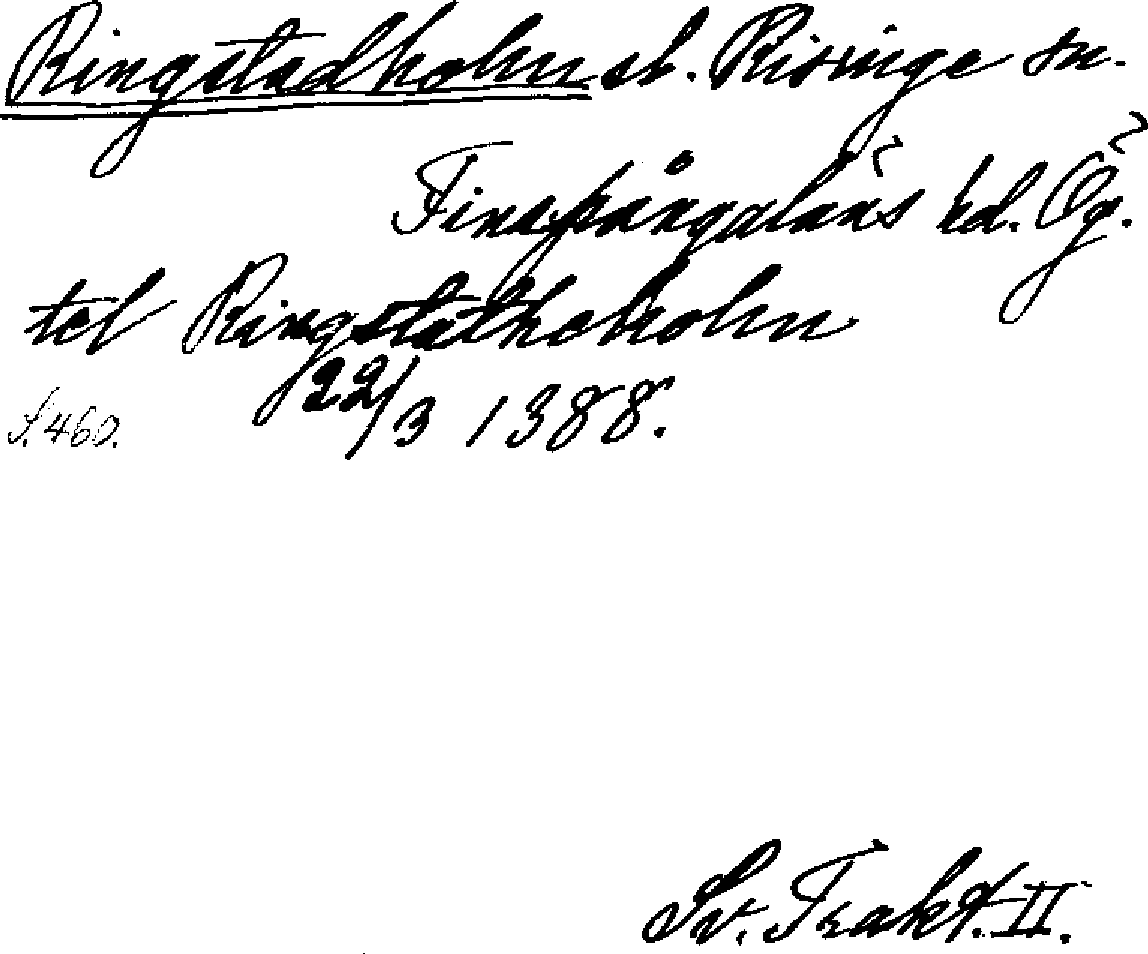 Ringstadholm sl. Risinge sn.
Finspångaläns hd. Ög.
tel Ringstatheholm
22/3 1388.
S. 460.
Sv. Trakt. II.